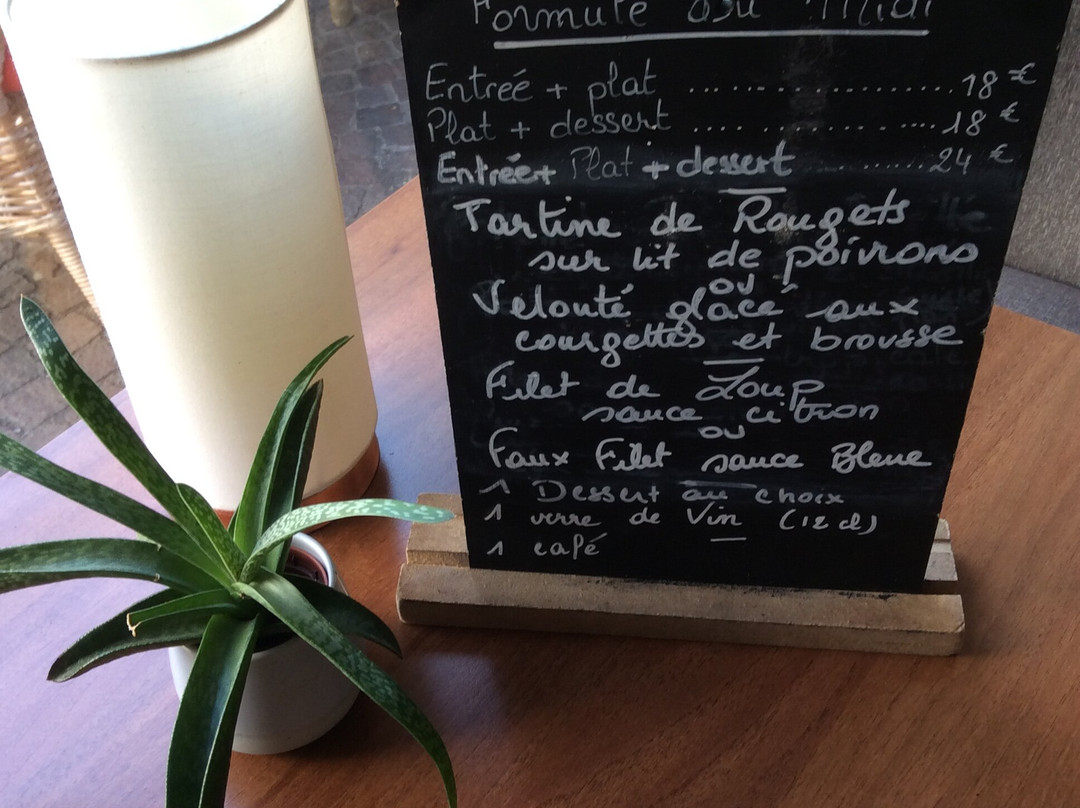 Formule du Midi
Entreé + plat ................ 18 €
Plat + dessert ................ 18 €
Entrée+ Plat + dessert ........ 24 €
Tartine de Rougets
sur lit de poivrons
ou
Velouté glacé aux
courgettes et brousse
Filet de Loup
sauce citron
ou
Faux Filet sauce Bleue
1 Dessert au choix
1 verre de Vin (12 cl)
1 café